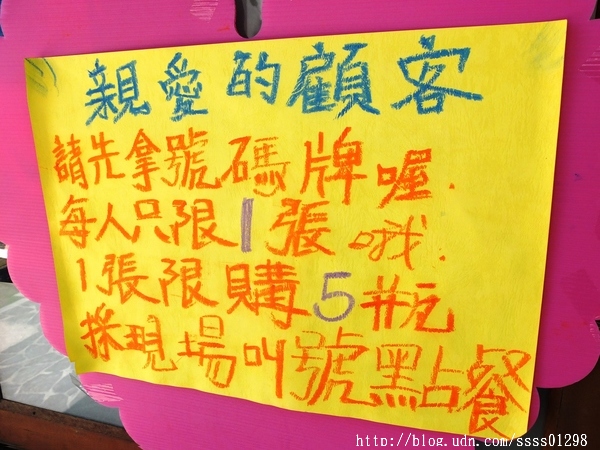 親愛的顧客
請先拿號碼牌喔.
每人只限1張哦.
1張限購5瓶
採現場叫號點餐
http://blog.udn.com/ssss01298